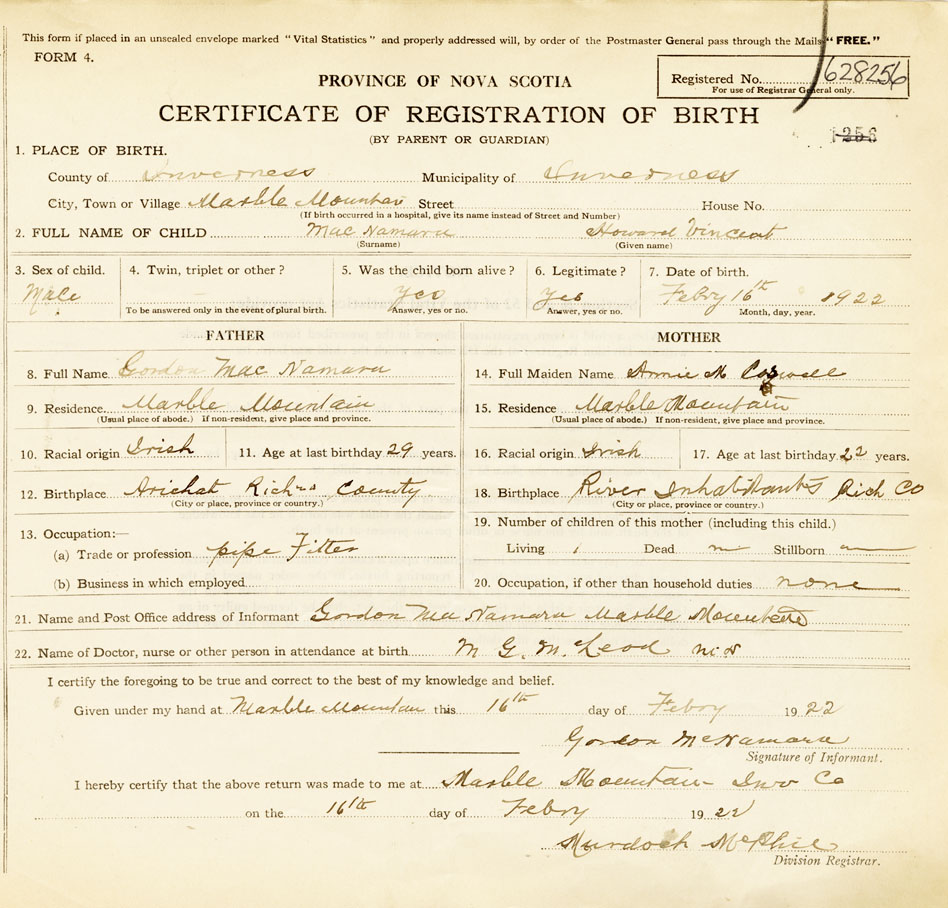 This form if placed in an unsealed envelope marked "Vital Statistics" and properly addressed will, by order of the Postmaster General pass through the Mails "FREE."
FORM 4.
PROVINCE OF NOVA SCOTIA
Registered No. 628256
For use of Registrar General only.
CERTIFICATE OF REGISTRATION OF BIRTH
(BY PARENT OR GUARDIAN)
1256
1. PLACE OF BIRTH.
County of Inverness Municipality of Inverness
City, Town or Village Marble Mountain Street House No.
(If birth occurred in a hospital, give its name instead of Street and Number)
2. FULL NAME OF CHILD Mac Namara Howard Vincent
(Surname) (Given name)
3. Sex of child. 4. Twin, triplet or other? 5. Was the child born alive? 6. Legitimate? 7. Date of birth.
Male yes Yes Febry 16th 1922
To be answered only in the event of plural birth. Answer, yes or no. Answer, yes or no. Month, day, year.
FATHER
8. Full Name Gordon Mac Namara
9. Residence Marble Mountain
(Usual place of abode.) If non-resident, give place and province.
10. Racial origin Irish 11. Age at last birthday 29 years.
12. Birthplace Arichat County
(City or place, province or country.)
13. Occupation:—
(a) Trade or profession pipe Fitter
(b) Business in which employed
MOTHER
14. Full Maiden Name Annie M
15. Residence Marble Mountain
(Usual place of abode.) If non-resident, give place and province.
16. Racial origin Irish 17. Age at last birthday 22 years.
18. Birthplace River Inhabitants Rich Co
(City or place, province or country.)
19. Number of children of this mother (including this child.)
Living 1 Dead Stillborn
20. Occupation, if other than household duties none
21. Name and Post Office address of Informant Gordon Mac Namara Marble Mountain
22. Name of Doctor, nurse or other person in attendance at birth M G McLeod
I certify the foregoing to be true and correct to the best of my knowledge and belief.
Given under my hand at Marble Mountain this 16th day of Febry 1922
Gordon McNamara
Signature of Informant.
I hereby certify that the above return was made to me at Marble Mountain Inv Co
on the 16th day of Febry 1922
Murdoch McPhie
Division Registrar.